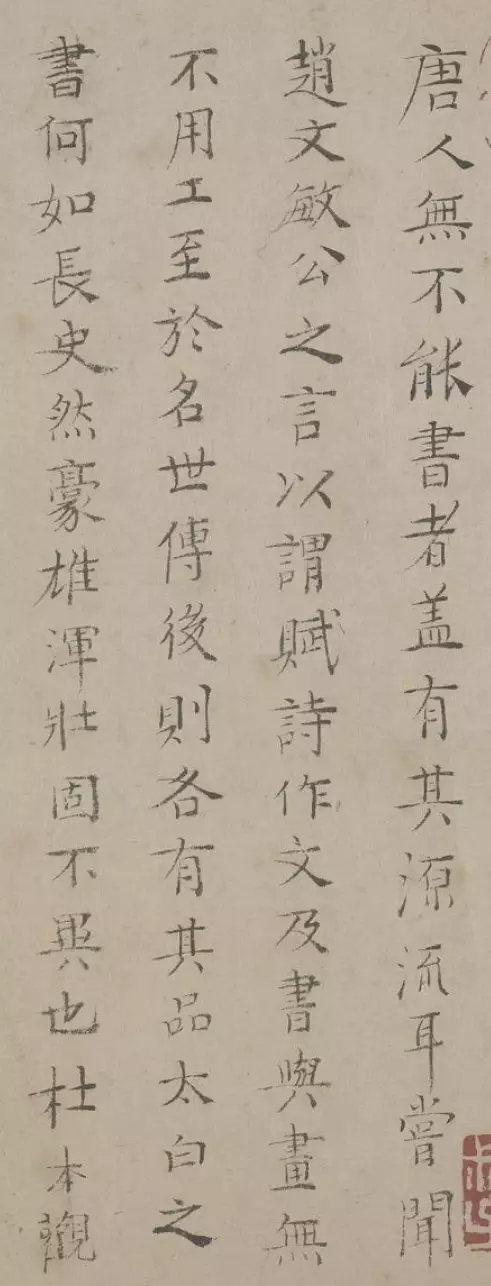 唐人無不能書者盖有其源流耳嘗聞
趙文敏公之言以謂賦詩作文及書與畫無
不用工至於名世傳後則各有其品太白之
書何如長史然豪雄渾壯固不異也杜本觀